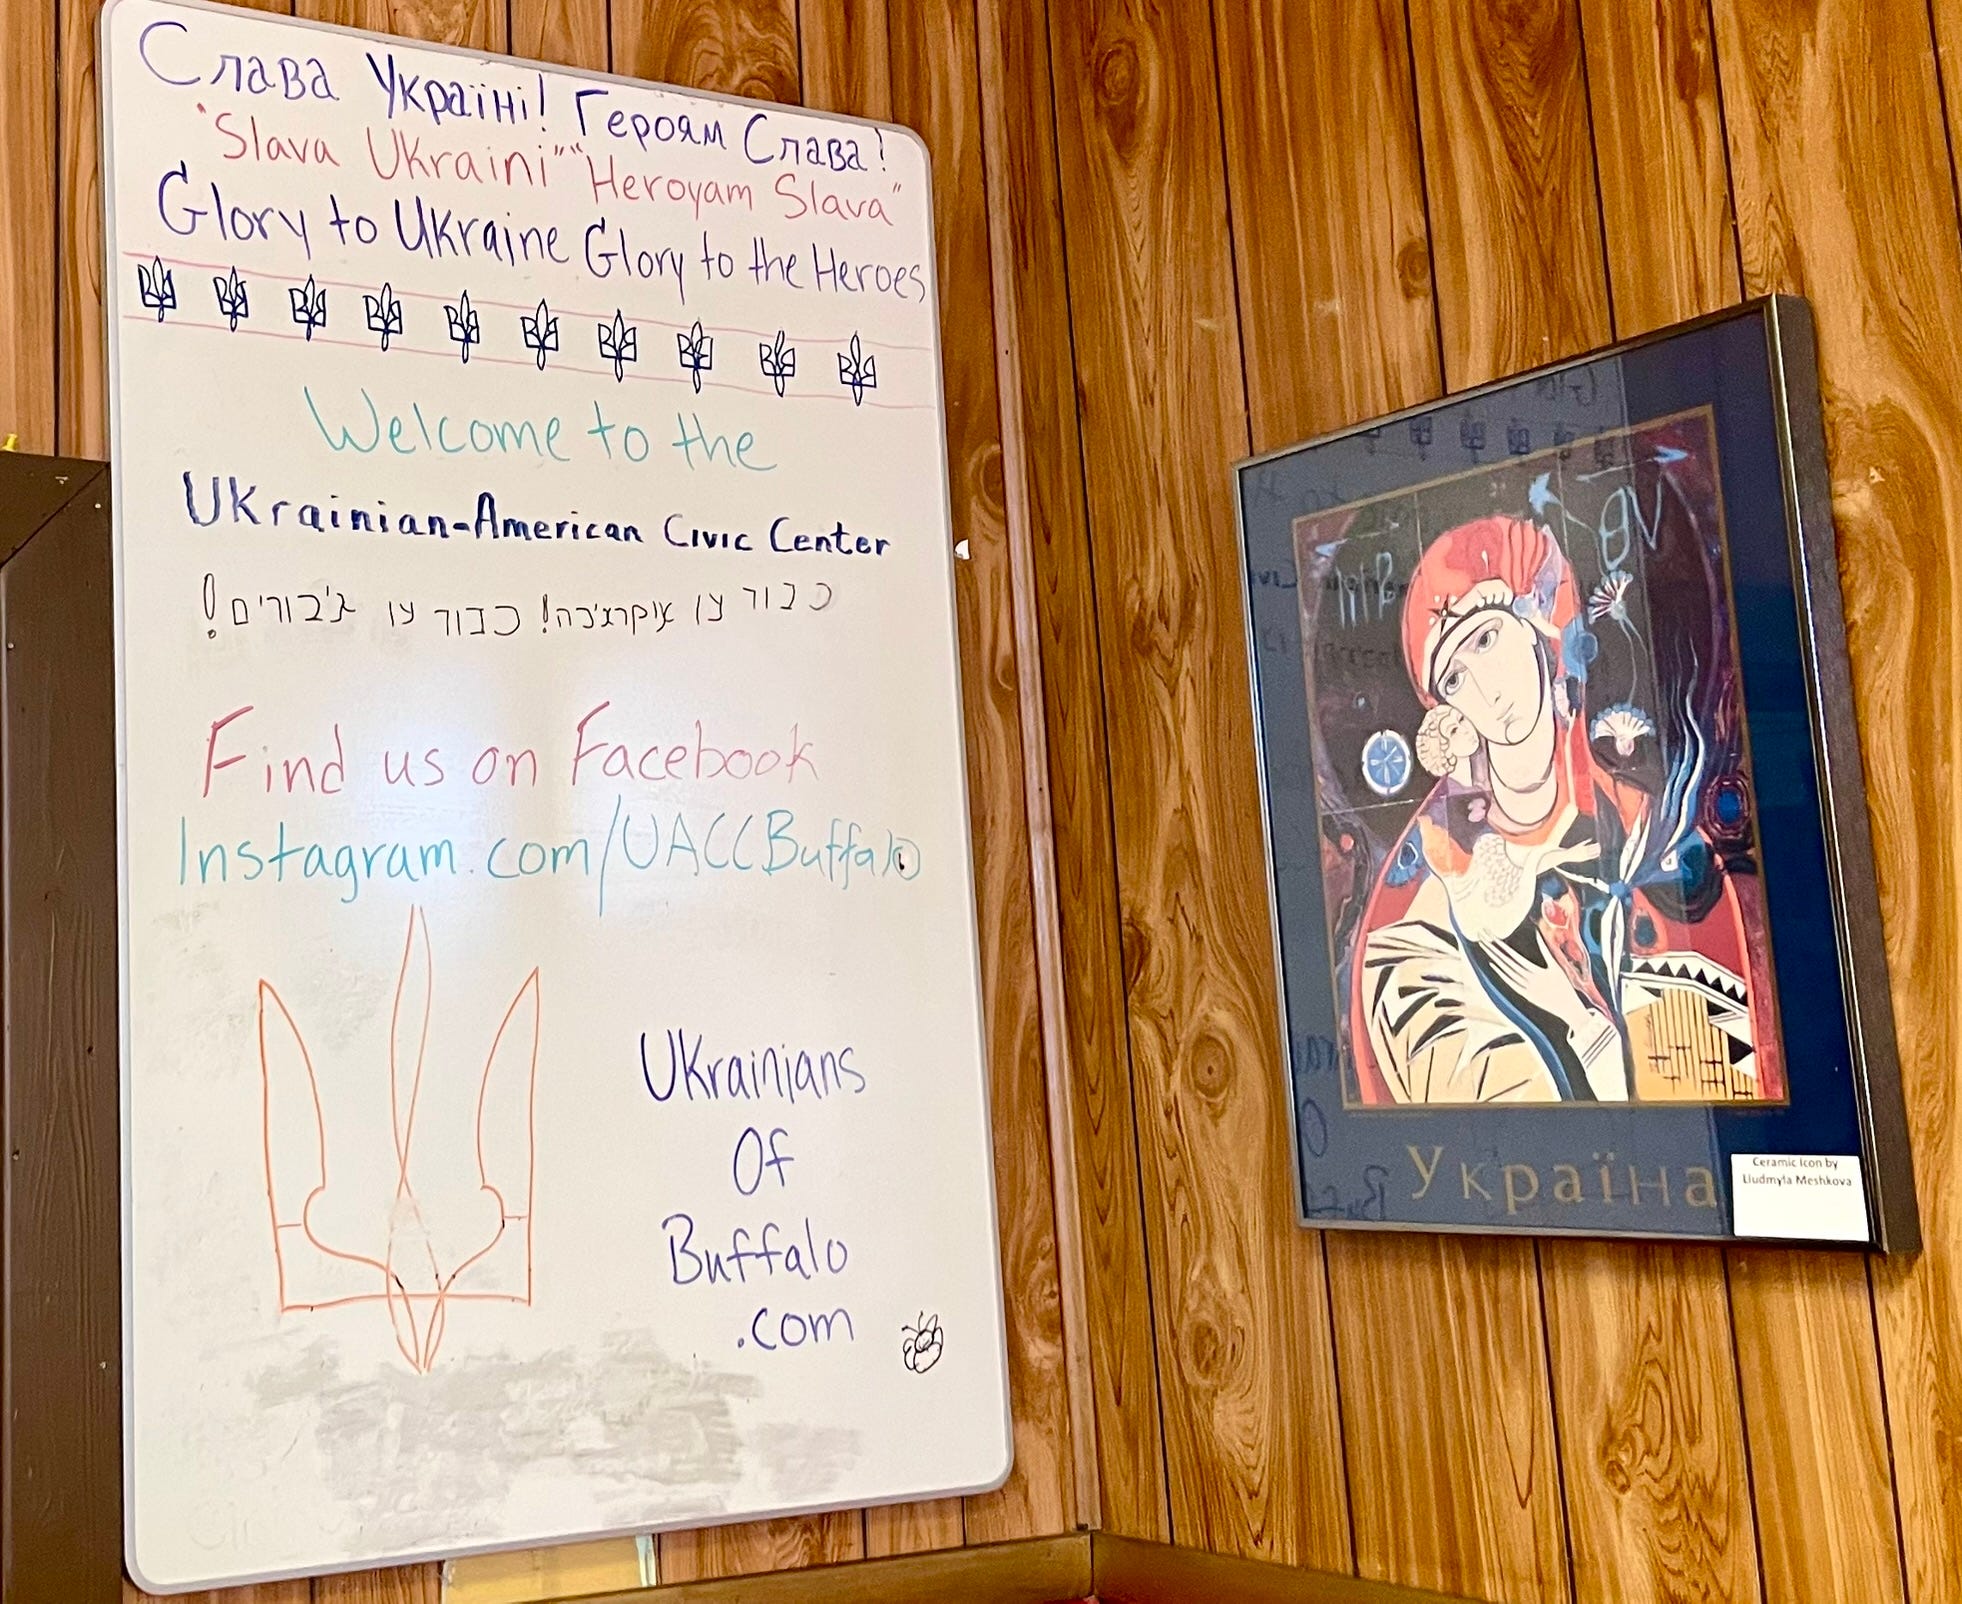 Слава Україні! Героям Слава!
"Slava Ukraini" "Heroyam Slava"
Glory to Ukraine Glory to the Heroes
Welcome to the
Ukrainian-American Civic Center
כבוד צו אוקראינה! כבוד צו גיבורים!
Find us on Facebook
Instagram.com/UACCBuffalo
Ukrainians
Of
Buffalo
.com
Україна
Ceramic Icon by
Liudmyla Meshkova